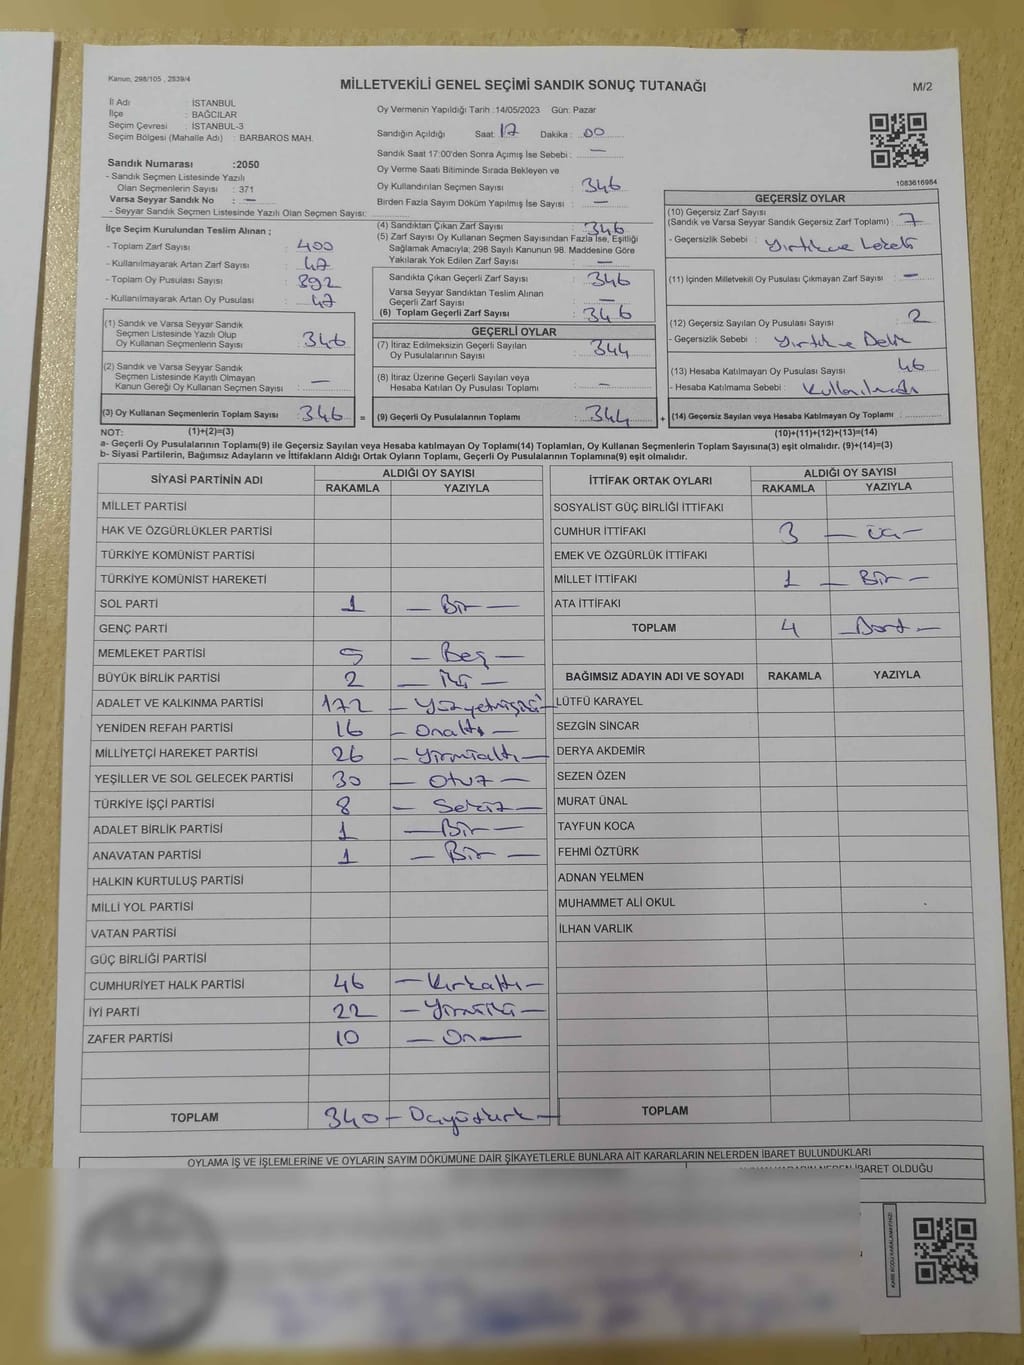 Kanun, 298/105 , 2839/4
MİLLETVEKİLİ GENEL SEÇİMİ SANDIK SONUÇ TUTANAĞI
M/2
İl Adı : İSTANBUL
İlçe : BAĞCILAR
Seçim Çevresi : İSTANBUL-3
Seçim Bölgesi (Mahalle Adı) : BARBAROS MAH.
Sandık Numarası :2050
- Sandık Seçmen Listesinde Yazılı
Olan Seçmenlerin Sayısı : 371
Varsa Seyyar Sandık No : —
- Seyyar Sandık Seçmen Listesinde Yazılı Olan Seçmen Sayısı:
Oy Vermenin Yapıldığı Tarih :14/05/2023 Gün: Pazar
Sandığın Açıldığı Saat: 17 Dakika : 00
Sandık Saat 17:00'den Sonra Açımış İse Sebebi : —
Oy Verme Saati Bitiminde Sırada Bekleyen ve
Oy Kullandırılan Seçmen Sayısı : 346
Birden Fazla Sayım Döküm Yapılmış İse Sayısı : —
1083616984
İlçe Seçim Kurulundan Teslim Alınan ;
- Toplam Zarf Sayısı : 400
- Kullanılmayarak Artan Zarf Sayısı : 47
- Toplam Oy Pusulası Sayısı : 892
- Kullanılmayarak Artan Oy Pusulası : 47
(1) Sandık ve Varsa Seyyar Sandık
Seçmen Listesinde Yazılı Olup
Oy Kullanan Seçmenlerin Sayısı : 346
(2) Sandık ve Varsa Seyyar Sandık
Seçmen Listesinde Kayıtlı Olmayan
Kanun Gereği Oy Kullanan Seçmen Sayısı : —
(3) Oy Kullanan Seçmenlerin Toplam Sayısı : 346 =
(4) Sandıktan Çıkan Zarf Sayısı : 346
(5) Zarf Sayısı Oy Kullanan Seçmen Sayısından Fazla İse, Eşitliği
Sağlamak Amacıyla; 298 Sayılı Kanunun 98. Maddesine Göre
Yakılarak Yok Edilen Zarf Sayısı : —
Sandıkta Çıkan Geçerli Zarf Sayısı : 346
Varsa Seyyar Sandıktan Teslim Alınan
Geçerli Zarf Sayısı : —
(6) Toplam Geçerli Zarf Sayısı : 346
GEÇERLİ OYLAR
(7) İtiraz Edilmeksizin Geçerli Sayılan
Oy Pusulalarının Sayısı : 344
(8) İtiraz Üzerine Geçerli Sayılan veya
Hesaba Katılan Oy Pusulası Toplamı : —
(9) Geçerli Oy Pusulalarının Toplamı : 344 +
GEÇERSİZ OYLAR
(10) Geçersiz Zarf Sayısı
(Sandık ve Varsa Seyyar Sandık Geçersiz Zarf Toplamı) : 7
- Geçersizlik Sebebi : Yırtık ve Lekeli
(11) İçinden Milletvekili Oy Pusulası Çıkmayan Zarf Sayısı : —
(12) Geçersiz Sayılan Oy Pusulası Sayısı : 2
- Geçersizlik Sebebi : Yırtık ve Delik
(13) Hesaba Katılmayan Oy Pusulası Sayısı : 46
- Hesaba Katılmama Sebebi : Kullanılmadı
(14) Geçersiz Sayılan veya Hesaba Katılmayan Oy Toplamı :
NOT: (1)+(2)=(3) (10)+(11)+(12)+(13)=(14)
a- Geçerli Oy Pusulalarının Toplamı(9) ile Geçersiz Sayılan veya Hesaba katılmayan Oy Toplamı(14) Toplamları, Oy Kullanan Seçmenlerin Toplam Sayısına(3) eşit olmalıdır. (9)+(14)=(3)
b- Siyasi Partilerin, Bağımsız Adayların ve İttifakların Aldığı Ortak Oyların Toplamı, Geçerli Oy Pusulalarının Toplamına(9) eşit olmalıdır.
SİYASİ PARTİNİN ADI ALDIĞI OY SAYISI
RAKAMLA YAZIYLA
MİLLET PARTİSİ
HAK VE ÖZGÜRLÜKLER PARTİSİ
TÜRKİYE KOMÜNİST PARTİSİ
TÜRKİYE KOMÜNİST HAREKETİ
SOL PARTİ 1 — Bir —
GENÇ PARTİ
MEMLEKET PARTİSİ 5 — Beş —
BÜYÜK BİRLİK PARTİSİ 2 — İki —
ADALET VE KALKINMA PARTİSİ 172 — Yüzyetmişiki —
YENİDEN REFAH PARTİSİ 16 — Onaltı —
MİLLİYETÇİ HAREKET PARTİSİ 26 — Yirmialtı —
YEŞİLLER VE SOL GELECEK PARTİSİ 30 — Otuz —
TÜRKİYE İŞÇİ PARTİSİ 8 — Sekiz —
ADALET BİRLİK PARTİSİ 1 — Bir —
ANAVATAN PARTİSİ 1 — Bir —
HALKIN KURTULUŞ PARTİSİ
MİLLİ YOL PARTİSİ
VATAN PARTİSİ
GÜÇ BİRLİĞİ PARTİSİ
CUMHURİYET HALK PARTİSİ 46 — Kırkaltı —
İYİ PARTİ 22 — Yirmiiki —
ZAFER PARTİSİ 10 — On —
TOPLAM 340 — Üçyüzkırk —
İTTİFAK ORTAK OYLARI ALDIĞI OY SAYISI
RAKAMLA YAZIYLA
SOSYALİST GÜÇ BİRLİĞİ İTTİFAKI
CUMHUR İTTİFAKI 3 — Üç —
EMEK VE ÖZGÜRLÜK İTTİFAKI
MİLLET İTTİFAKI 1 — Bir —
ATA İTTİFAKI
TOPLAM 4 — Dört —
BAĞIMSIZ ADAYIN ADI VE SOYADI RAKAMLA YAZIYLA
LÜTFÜ KARAYEL
SEZGİN SİNCAR
DERYA AKDEMİR
SEZEN ÖZEN
MURAT ÜNAL
TAYFUN KOCA
FEHMİ ÖZTÜRK
ADNAN YELMEN
MUHAMMET ALİ OKUL
İLHAN VARLIK
TOPLAM
OYLAMA İŞ VE İŞLEMLERİNE VE OYLARIN SAYIM DÖKÜMÜNE DAİR ŞİKAYETLERLE BUNLARA AİT KARARLARIN NELERDEN İBARET BULUNDUKLARI
İBARET OLDUĞU